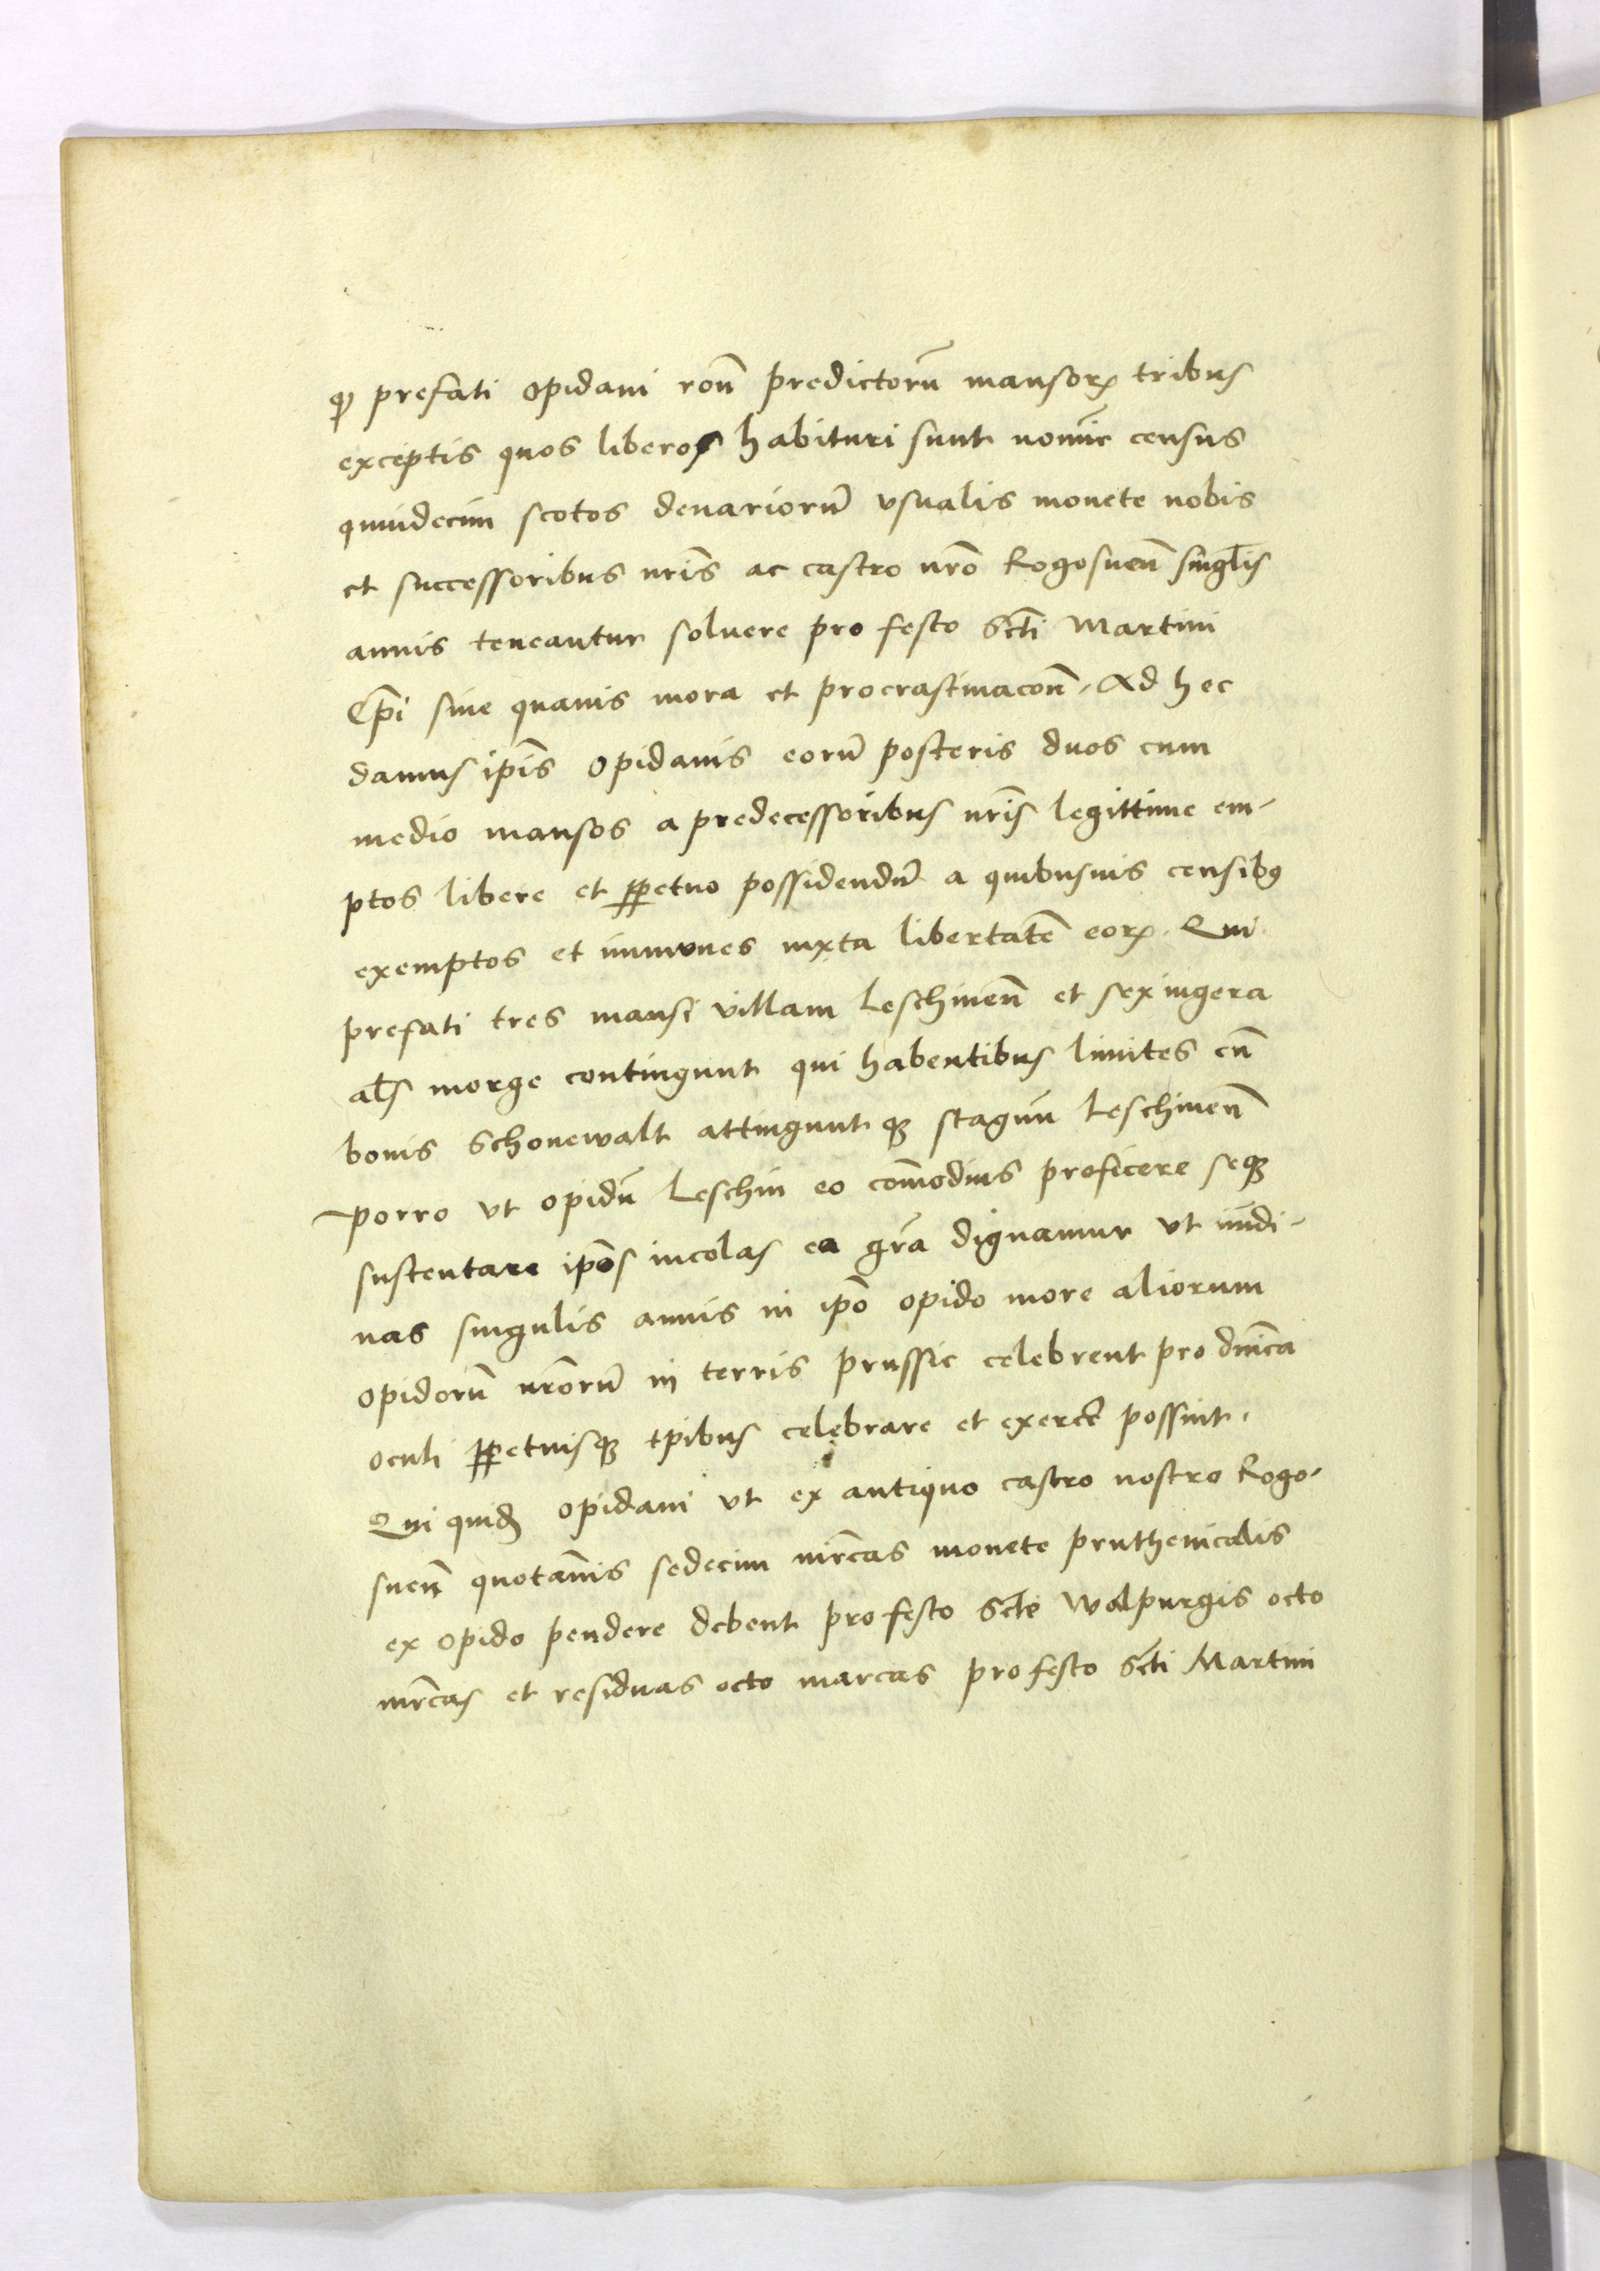 ꝙ prefati Opidani roñ predictorũ mansorꝝ tribus
exceptis quos liberos habituri sunt noĩe census
quindecim scotos denariorũ vsualis monete nobis
et successoribus nrĩs ac castro nrõ Rogosneñ singlis
annis teneantur soluere pro festo Scti Martini
Ep̃i sine quauis mora et procrastinacoñ. Ad hec
damus ip̃is Opidanis eorũ posteris duos cum
medio mansos a predecessoribus nrĩs legittime em-
ptos libere et ꝑpetuo possidendũ a quibusuis censibꝰ
exemptos et immunes iuxta libertatẽ eorꝝ. Qui
prefati tres mansi villam Leschineñ et sex iugera
als̃ morge contingunt qui habentibus limites cũ
bonis Schonewalt attingunt qꝫ stagnũ Leschineñ
Porro vt opidũ Leschin eo cõmodius proficere seqꝫ
sustentare ip̃os incolas ea grã dignamur vt nũdi-
nas singulis annis in ip̃o opido more aliorum
Opidorũ nrõrũ in terris prussie celebrent pro dñica
oculi ꝑpetuisqꝫ tp̃ibus celebrare et exerce possint.
Qui quidẽ Opidani vt ex antiquo castro nostro Rogo-
sneñ quotañis sedecim mrc̃as monete pruthenicalis
ex Opido pendere debent pro festo Scte Walpurgis octo
mrc̃as et residuas octo marcas pro festo Scti Martini